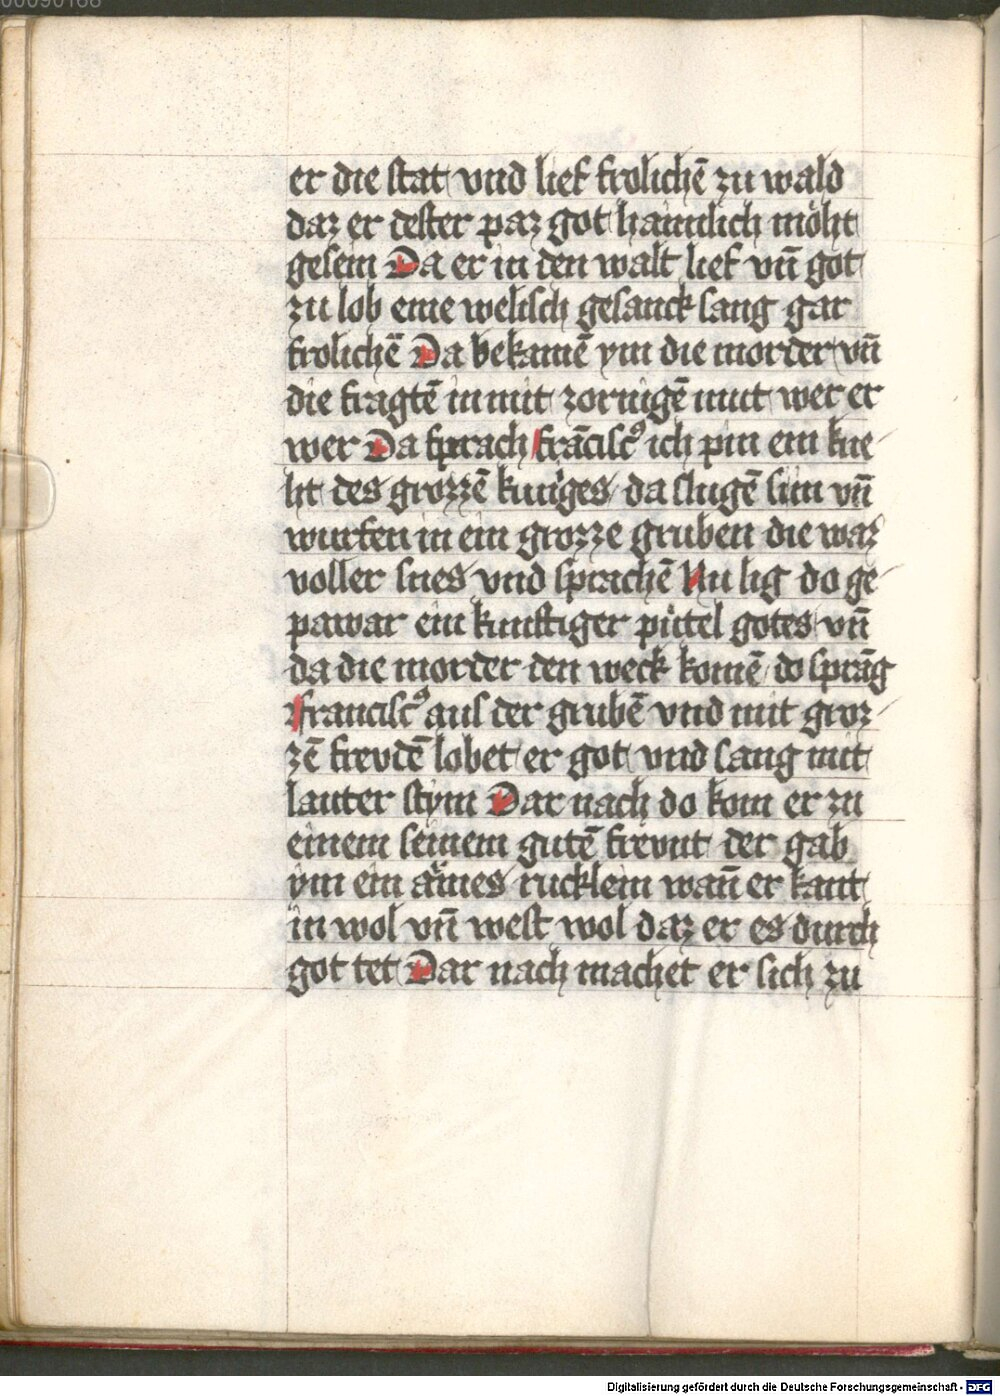 00090168
er die stat vnd lief frolichē zu wald
daz er dester paz got haimlich möht
gesein Da er in den walt lief vn̄ got
zu lob eine welisch gesanck sang gar
frolichē Da bekamē ym die morder vn̄
die fragtē in mit zornigē mut wer er
wer Da sprach francisc⁹ ich pin ein kne-
ht des grozzē kuniges da slugē sim vn̄
wurfen in ein grozze gruben die waz
voller snes vnd sprachē Nu lig do ge-
pawar ein kunftiger pütel gotes vn̄
da die morder den weck komē do sprāg
francisc⁹ aus der grubē vnd mit groz-
zē frevdē lobet er got vnd sang mit
lauter stym Dar nach do kom er zu
einem seinem gutē frevnt der gab
ym ein armes rucklein wan̄ er kant
in wol vn̄ west wol daz er es durch
got tet Dar nach machet er sich zu
Digitalisierung gefördert durch die Deutsche Forschungsgemeinschaft - DFG